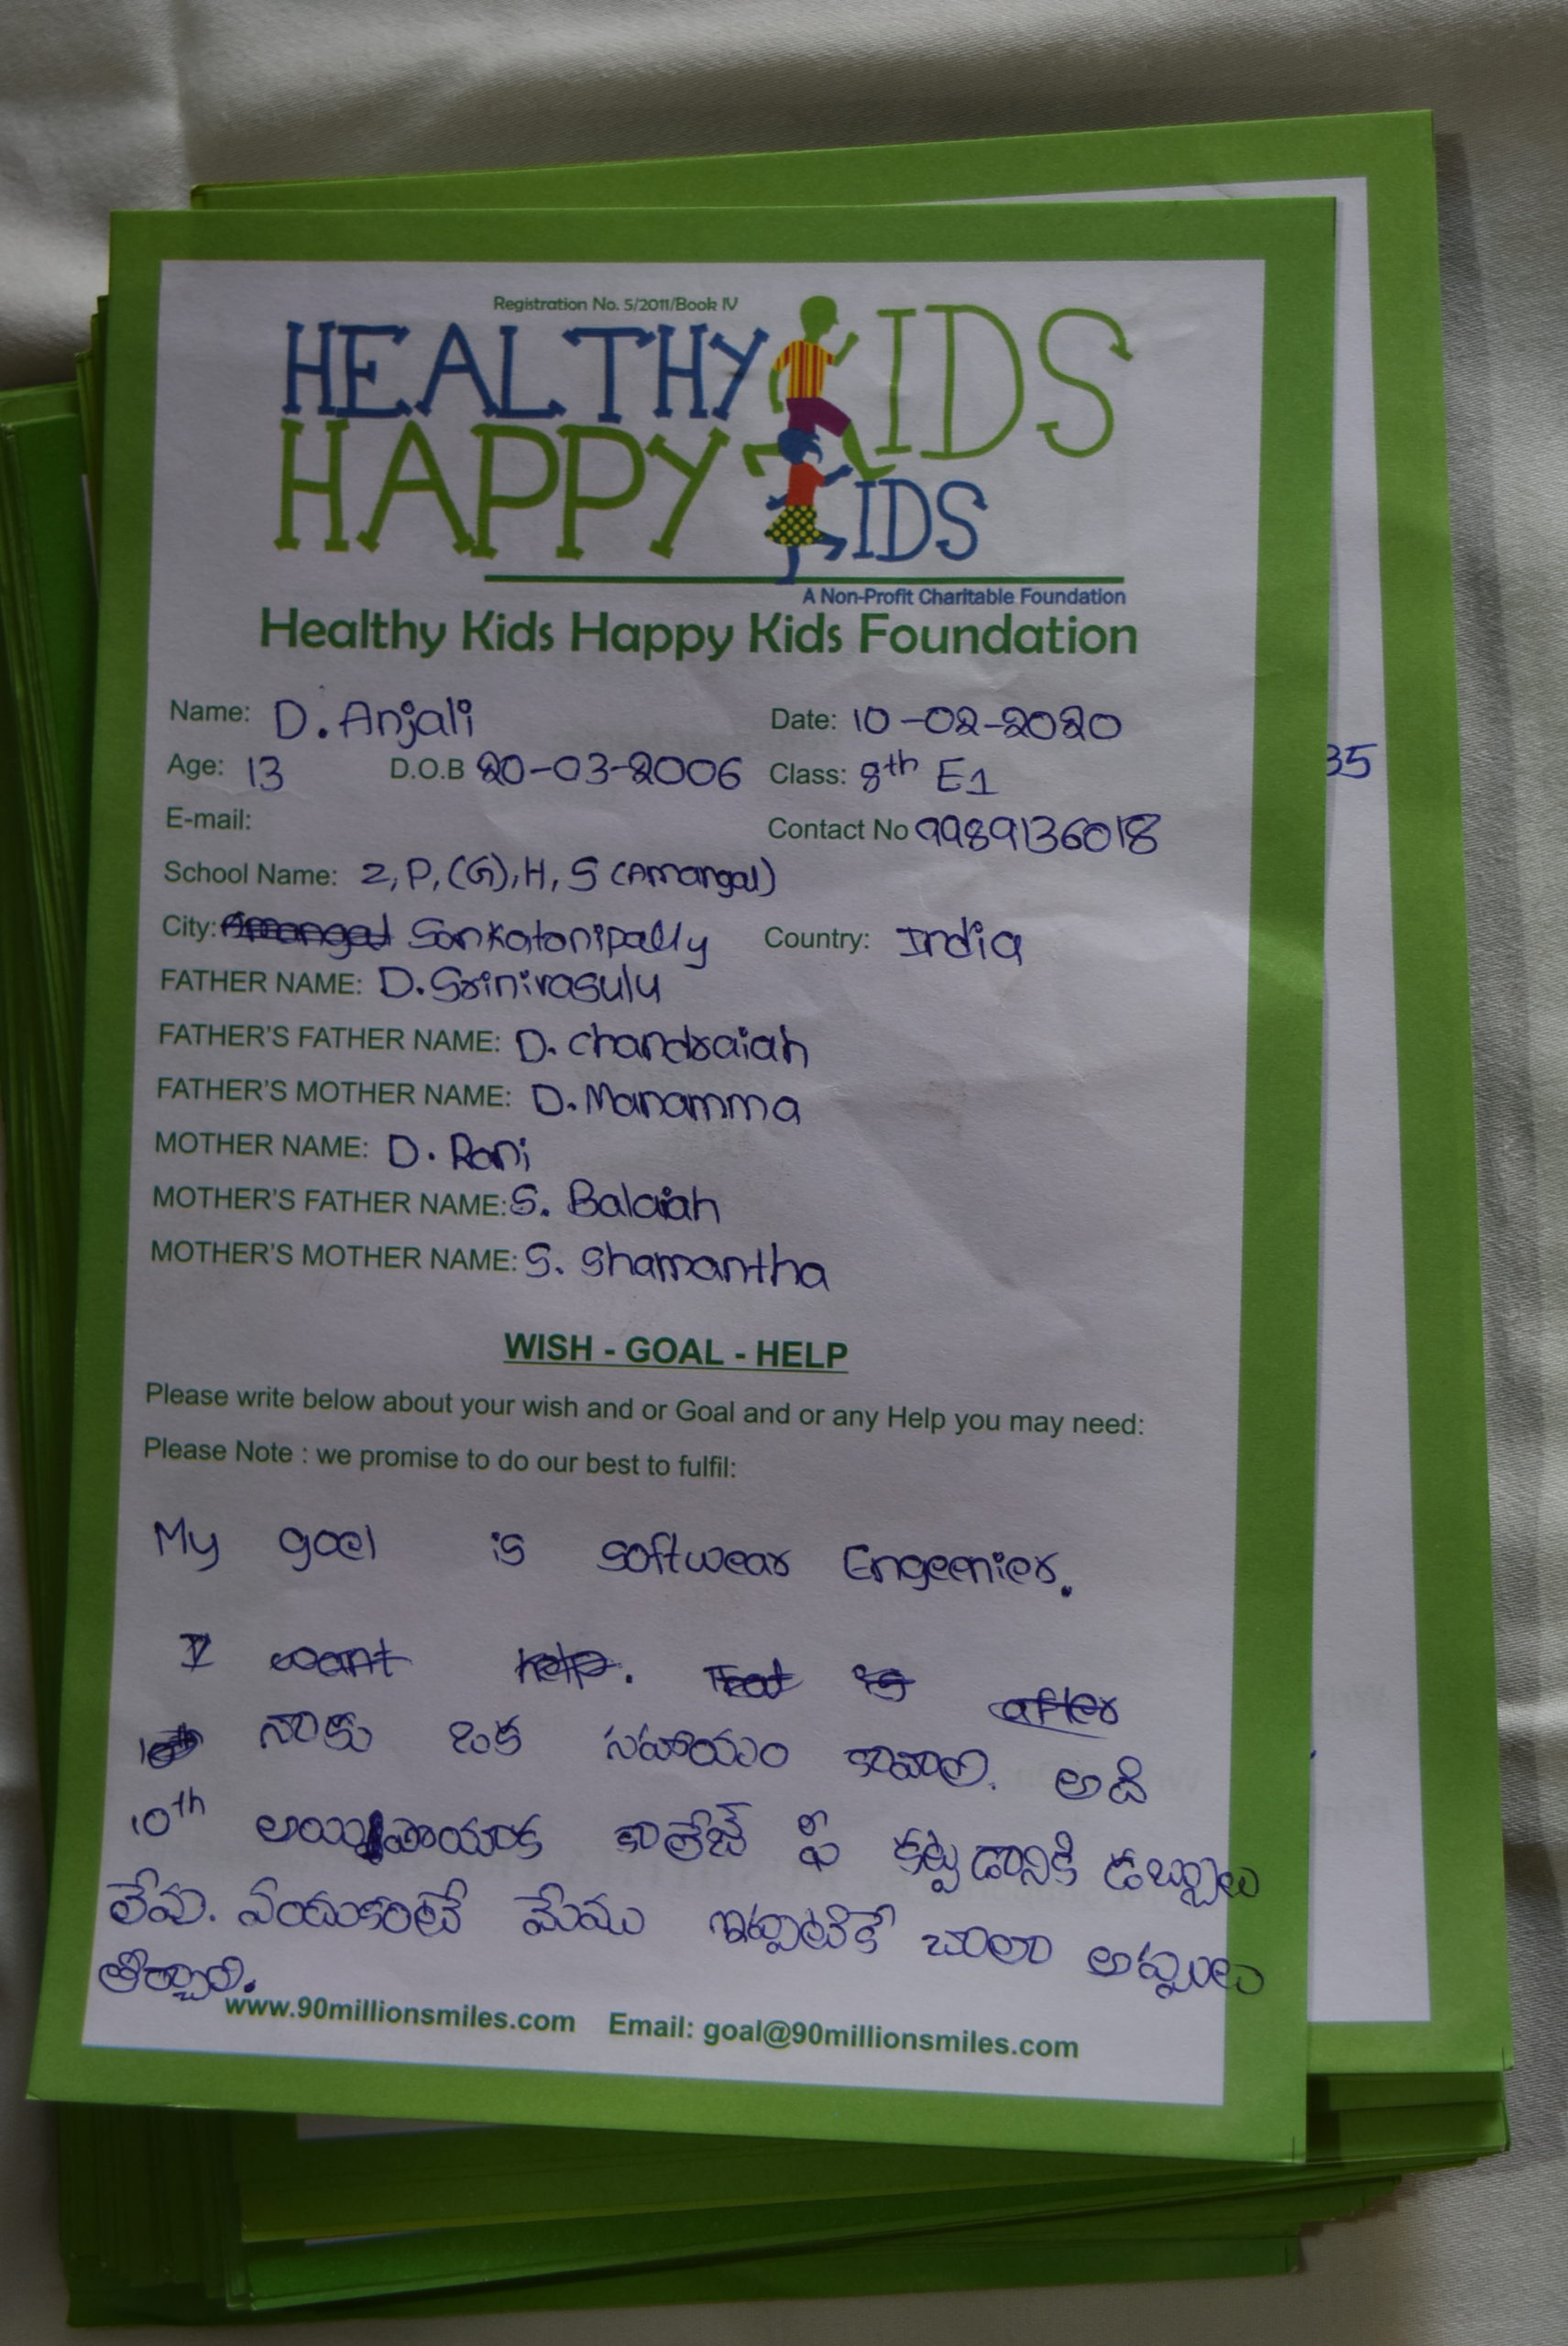 Registration No. 5/2011/Book IV
HEALTHY KIDS
HAPPY KIDS
A Non-Profit Charitable Foundation
Healthy Kids Happy Kids Foundation
Name: D. Anjali Date: 10-02-2020
35
Age: 13 D.O.B 20-03-2006 Class: 8th E1
E-mail: Contact No 9989136018
School Name: Z, P, (G), H, S (Amangal)
City: Amangal Sankatonipally Country: India
FATHER NAME: D. Srinivasulu
FATHER'S FATHER NAME: D. chandraiah
FATHER'S MOTHER NAME: D. Manamma
MOTHER NAME: D. Rani
MOTHER'S FATHER NAME: S. Balaiah
MOTHER'S MOTHER NAME: S. Shamantha
WISH - GOAL - HELP
Please write below about your wish and or Goal and or any Help you may need:
Please Note : we promise to do our best to fulfil:
My goel is softwear Engeenier.
I want help. That is after
10th నాకు ఒక సహాయం కావాలి. అది
10th అయిపోయాక కాలేజీ ఫీ కట్టడానికి డబ్బులు
లేవు. ఎందుకంటే మేము ఇప్పటికే చాలా అప్పులు
తీర్చాలి.
www.90millionsmiles.com Email: goal@90millionsmiles.com